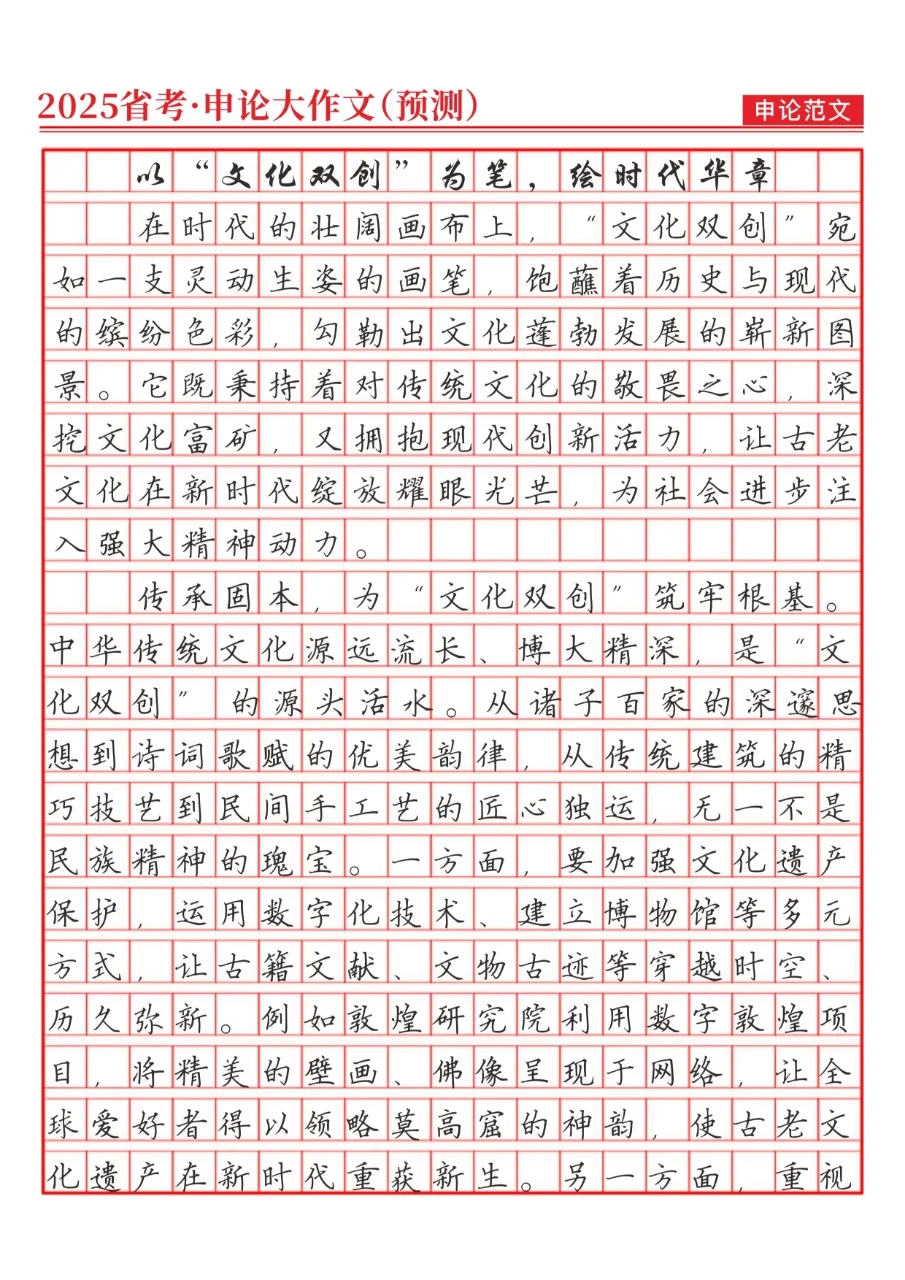 2025省考·申论大作文(预测)
申论范文
以“文化双创”为笔，绘时代华章
在时代的壮阔画布上，“文化双创”宛
如一支灵动生姿的画笔，饱蘸着历史与现代
的缤纷色彩，勾勒出文化蓬勃发展的崭新图
景。它既秉持着对传统文化的敬畏之心，深
挖文化富矿，又拥抱现代创新活力，让古老
文化在新时代绽放耀眼光芒，为社会进步注
入强大精神动力。
传承固本，为“文化双创”筑牢根基。
中华传统文化源远流长、博大精深，是“文
化双创”的源头活水。从诸子百家的深邃思
想到诗词歌赋的优美韵律，从传统建筑的精
巧技艺到民间手工艺的匠心独运，无一不是
民族精神的瑰宝。一方面，要加强文化遗产
保护，运用数字化技术、建立博物馆等多元
方式，让古籍文献、文物古迹等穿越时空、
历久弥新。例如敦煌研究院利用数字敦煌项
目，将精美的壁画、佛像呈现于网络，让全
球爱好者得以领略莫高窟的神韵，使古老文
化遗产在新时代重获新生。另一方面，重视